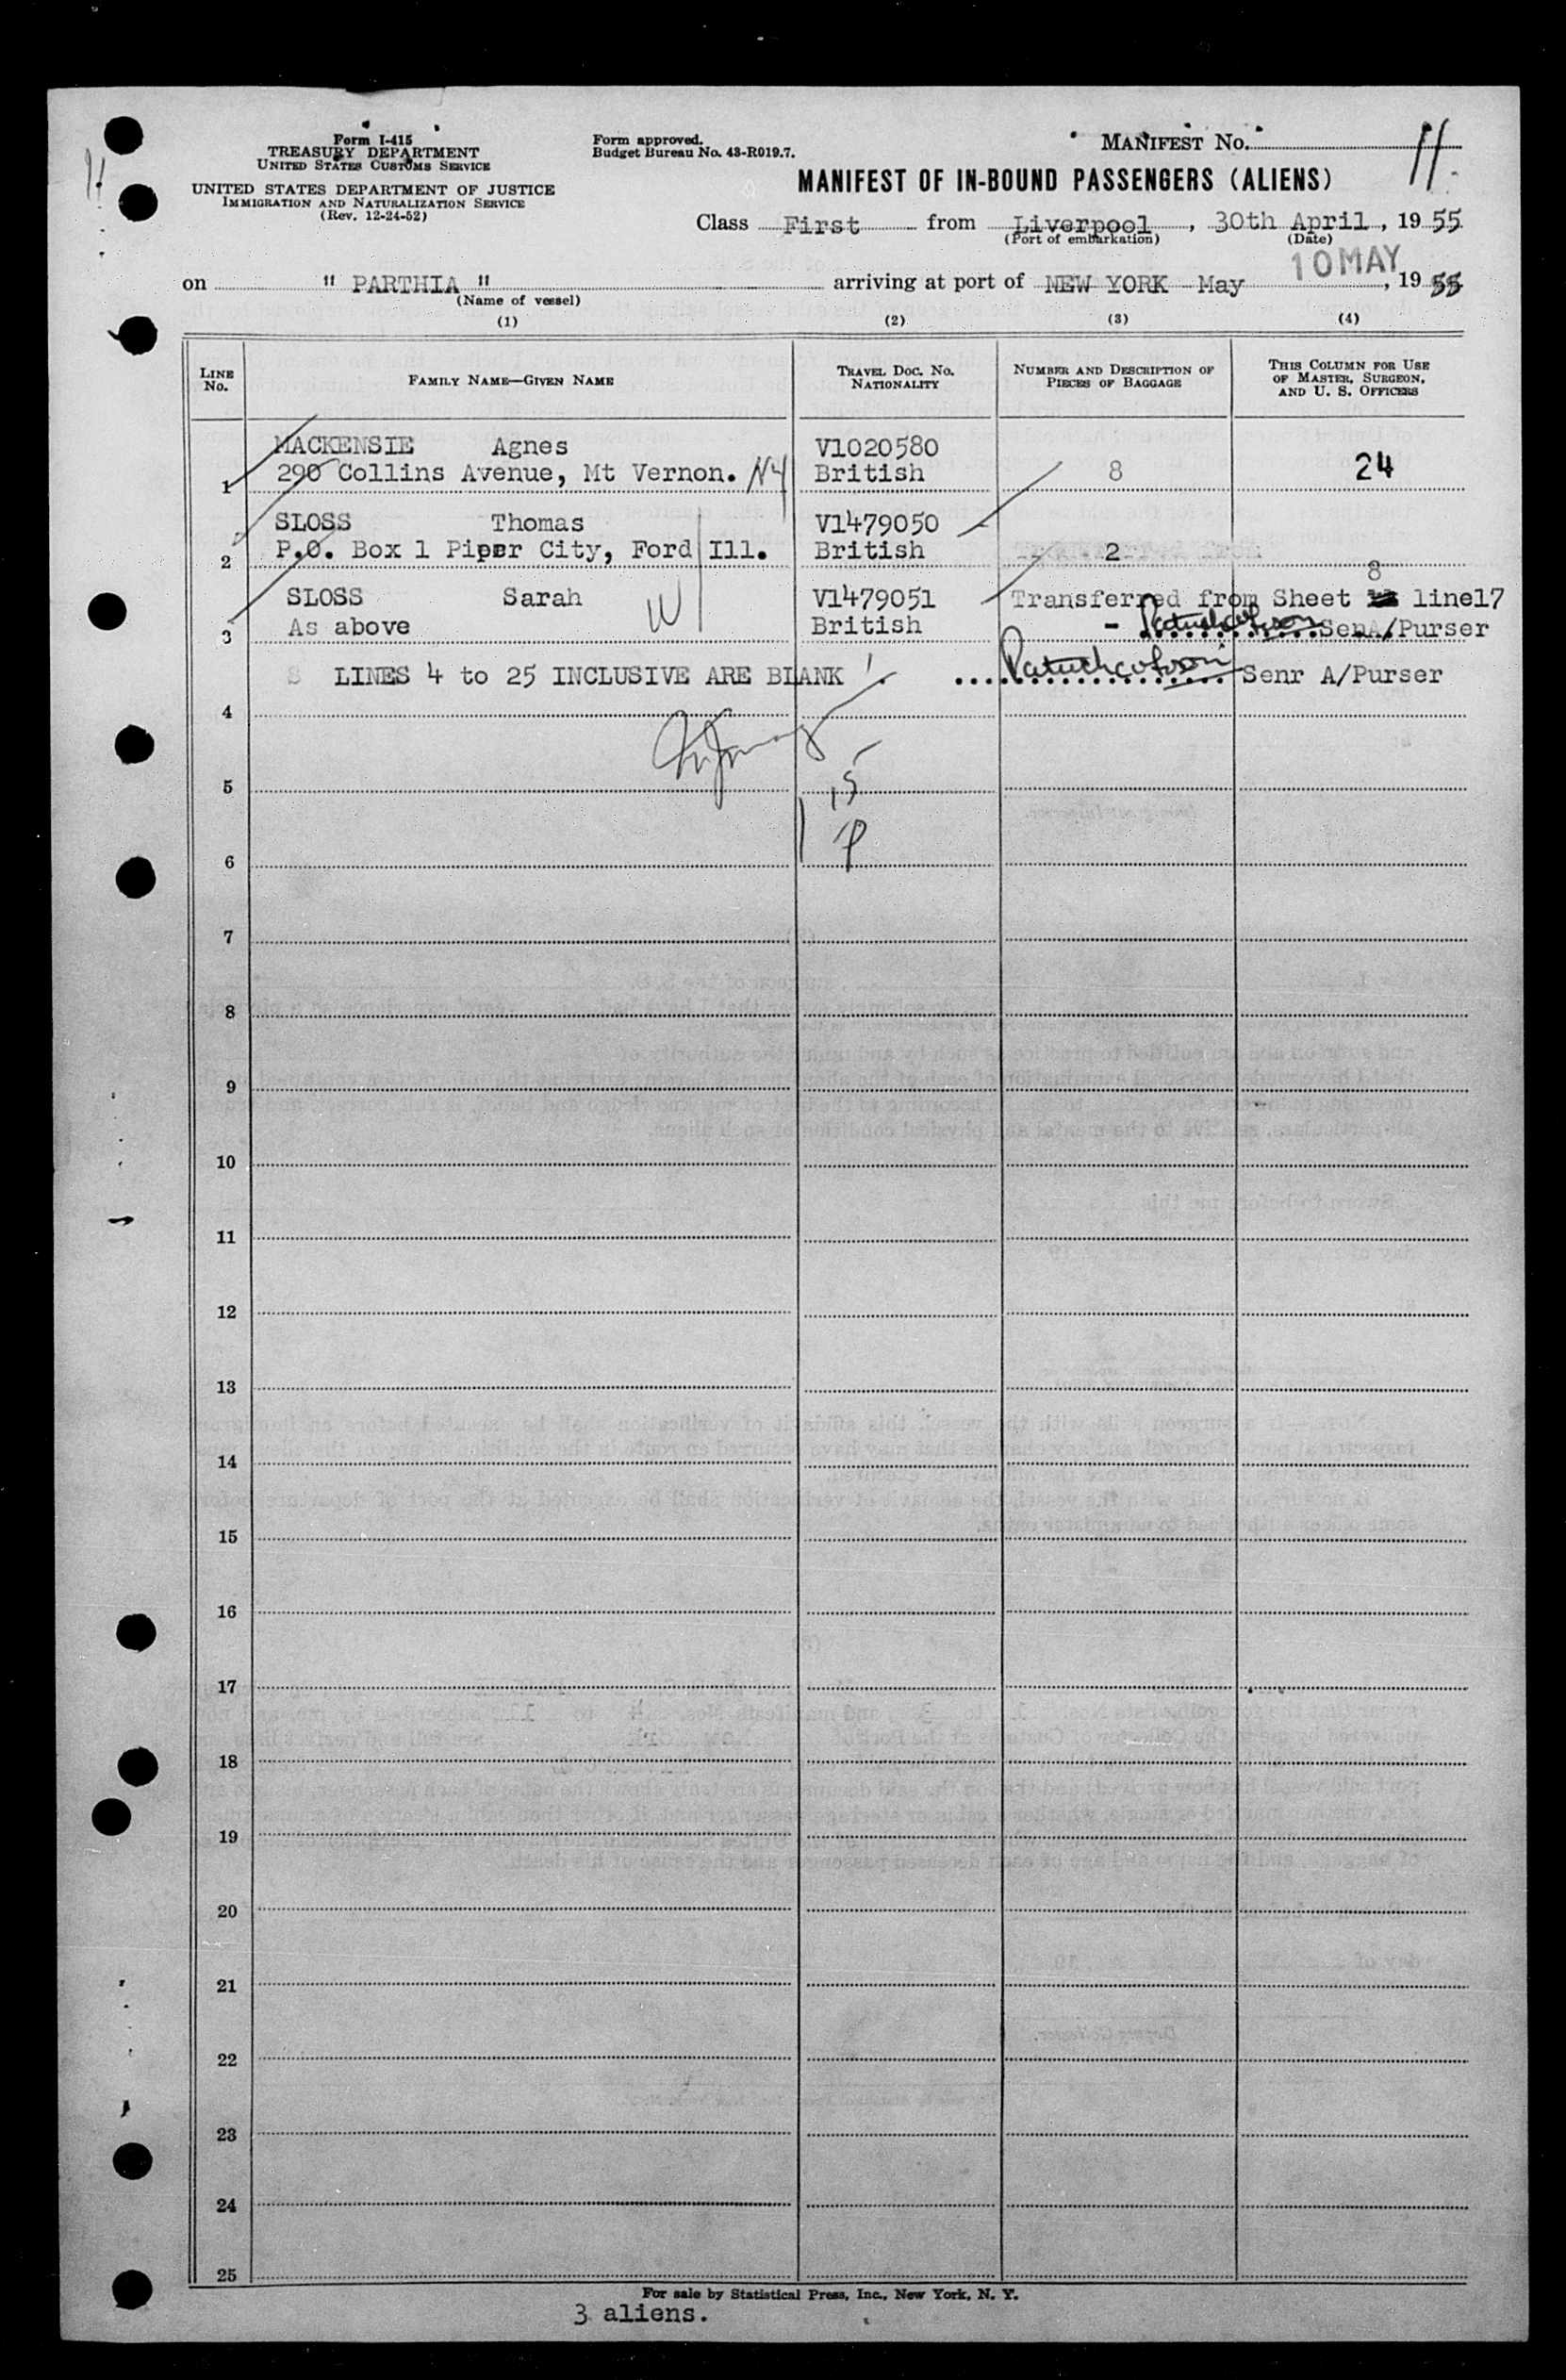 Form I-415
TREASURY DEPARTMENT
UNITED STATES CUSTOMS SERVICE
UNITED STATES DEPARTMENT OF JUSTICE
IMMIGRATION AND NATURALIZATION SERVICE
(Rev. 12-24-52)
Form approved.
Budget Bureau No. 43-R019.7.
MANIFEST No. 11
MANIFEST OF IN-BOUND PASSENGERS (ALIENS)
Class First from Liverpool, 30th April, 1955
(Port of embarkation) (Date)
10 MAY
on " PARTHIA " arriving at port of NEW YORK May, 1955
(Name of vessel)
(1) (2) (3) (4)
LINE No. FAMILY NAME—GIVEN NAME TRAVEL DOC. NO. NATIONALITY NUMBER AND DESCRIPTION OF PIECES OF BAGGAGE THIS COLUMN FOR USE OF MASTER, SURGEON, AND U. S. OFFICERS
MACKENSIE Agnes V1020580
1 290 Collins Avenue, Mt Vernon. NY British 8 24
SLOSS Thomas V1479050
2 P.O. Box 1 Piper City, Ford Ill. British 2
8
SLOSS Sarah V1479051 Transferred from Sheet line17
3 As above British - SenA/Purser
LINES 4 to 25 INCLUSIVE ARE BLANK Senr A/Purser
4
5
6
7
8
9
10
11
12
13
14
15
16
17
18
19
20
21
22
23
24
25
For sale by Statistical Press, Inc., New York, N. Y.
3 aliens.